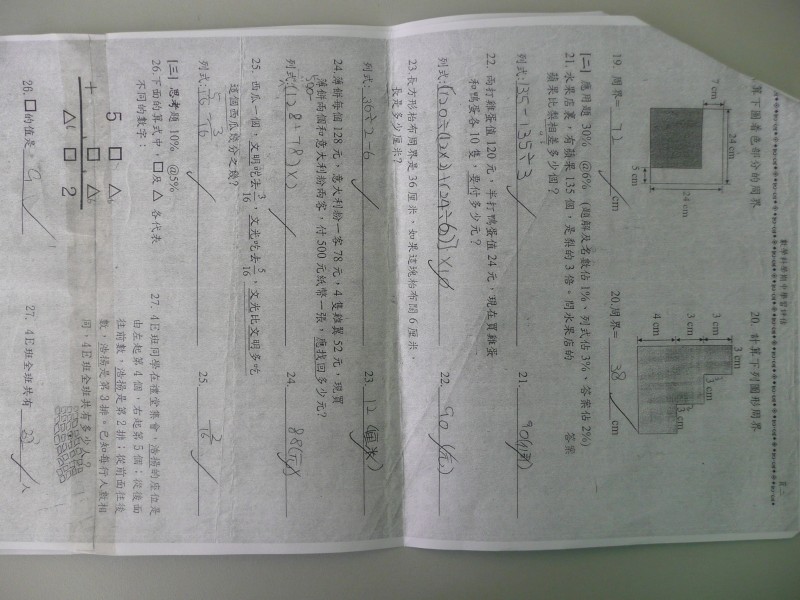 數學科學能中學習評估
算下圖着色部分的周界
20. 計算下列圖形周界
7 cm
24 cm
24 cm
5 cm
3 cm
3 cm
3 cm
3 cm
3 cm
4 cm
19. 周界= 72 cm
20.周界= 38 cm
[二] 應用題 30% @6% (題解及名數佔 1%、列式佔 3%、答案佔 2%)
答案
21. 水果店裏,有蘋果 135 個,是梨的 3 倍。問水果店的
蘋果比梨相差多少個?
列式: 135-135÷3
21. 90(個)
22. 兩打雞蛋值 120 元,半打鴨蛋值 24 元,現在買雞蛋
和鴨蛋各 10 隻,要付多少元?
列式: [120÷(12x2)+(24÷6)]x10
22. 90(元)
23. 長方形枱布周界是 36 厘米,如果這塊枱布闊 6 厘米,
長是多少厘米?
列式: 36÷2-6
23. 12(厘米)
24. 薄餅每個 128 元,意大利粉一客 78 元,4 隻雞翼 52 元,現買
薄餅兩個和意大利粉兩客,付 500 元紙幣一張,應找回多少元?
列式: 500-(128+78)x2
24. 88(元)
25. 西瓜一個,文明吃去 3/16,文光吃去 5/16,文光比文明多吃
這個西瓜幾分之幾?
列式: 5/16-3/16
25. 2/16
[三] 思考題 10% @5%
26. 下面的算式中,□及△各代表
不同的數字:
5 □ △
+ □ △
△ □ 2
26. □的值是 9
27. 4E班同學在禮堂集會,浩揚的座位是
由左起第 4 個,右起第 5 個;從後面
往前數,浩揚是第 2 排;從前面往後
數,浩揚是第 3 排。已知每行人數相
同,4E班全班共有多少人?
27. 4E班全班共有 人